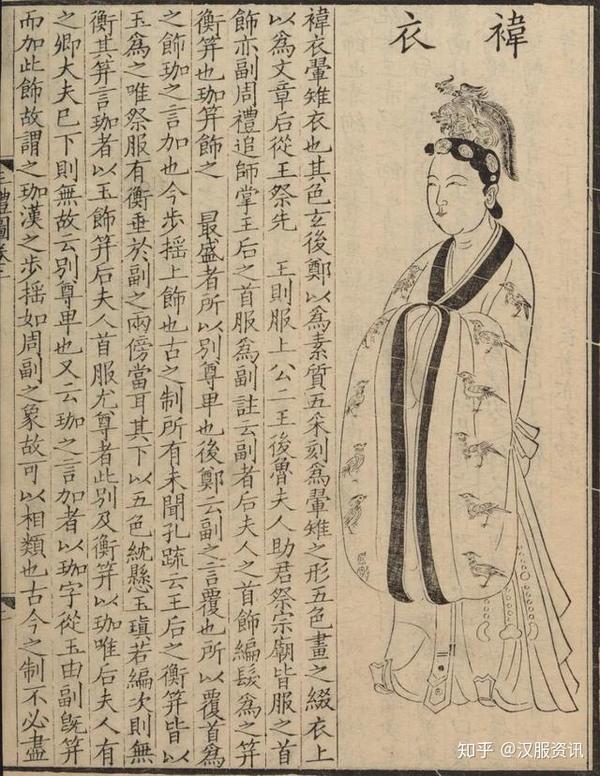 褘衣
褘衣翬雉衣也其色玄後鄭以為素質五采刻為翬雉之形五色畫之綴衣上
以為文章后從王祭先　王則服上公二王後魯夫人助君祭宗廟皆服之首
飾亦副周禮追師掌王后之首服為副註云副者后夫人之首飾編髮為之筓
衡筓也珈筓飾之　最盛者所以別尊卑也後鄭云副之言覆也所以覆首為
之飾珈之言加也今步搖上飾也古之制所有未聞孔疏云王后之衡筓皆以
玉為之唯祭服有衡垂於副之兩傍當耳其下以五色紞懸玉瑱若編次則無
衡其筓言珈者以玉飾筓后夫人首服尤尊者此別及衡筓以珈唯后夫人有
之卿大夫已下則無故云別尊卑也又云珈之言加者以珈字從玉由副既筓
而加此飾故謂之珈漢之步搖如周副之象故可以相類也古今之制不必盡
三禮圖卷二
知乎 @汉服资讯